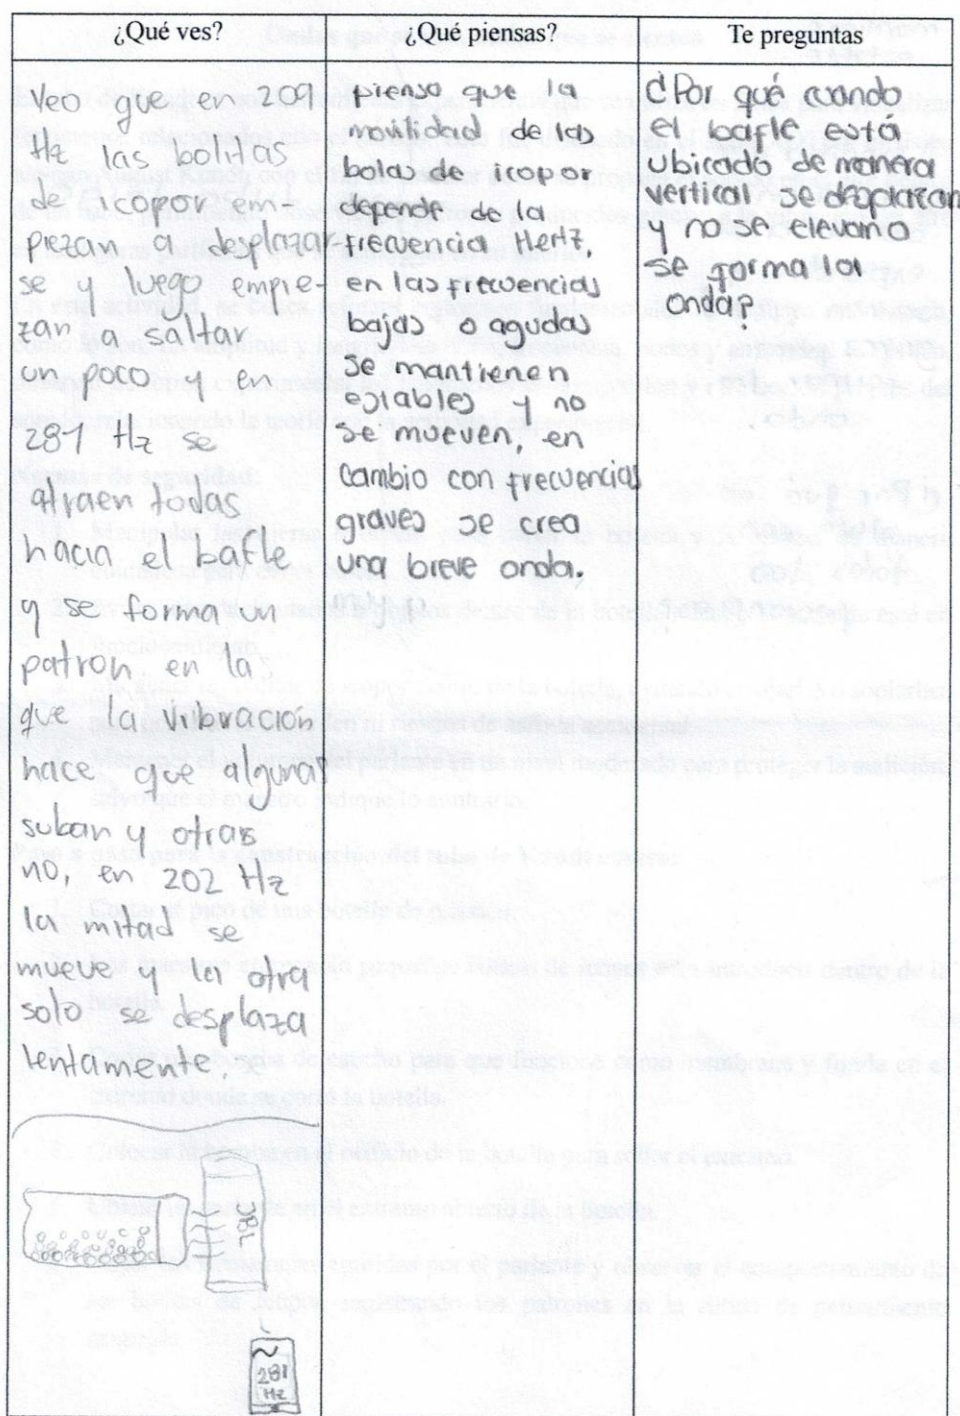 ¿Qué ves?
Veo que en 209
Hz las bolitas
de icopor em-
piezan a desplazar
se y luego empie-
zan a saltar
un poco y en
281 Hz se
atraen todas
hacia el bafle
y se forma un
patron en la
que la vibración
hace que algunas
suban y otras
no, en 202 Hz
la mitad se
mueve y la otra
solo se desplaza
lentamente.
JBL
281
Hz
¿Qué piensas?
pienso que la
movilidad de las
bolas de icopor
depende de la
frecuencia Hertz.
en las frecuencias
bajas o agudas
se mantienen
estables y no
se mueven, en
cambio con frecuencias
graves se crea
una breve onda.
Te preguntas
¿Por qué cuando
el bafle está
ubicado de manera
vertical se desplazan
y no se elevan o
se forma la
onda?